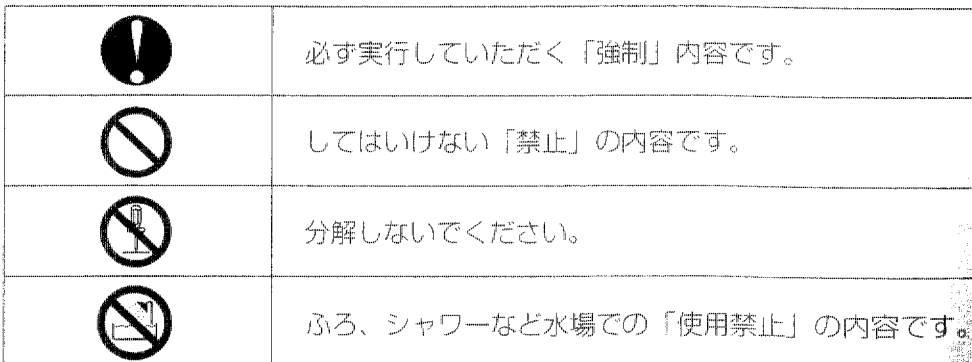 必ず実行していただく「強制」内容です。
してはいけない「禁止」の内容です。
分解しないでください。
ふろ、シャワーなど水場での「使用禁止」の内容です。